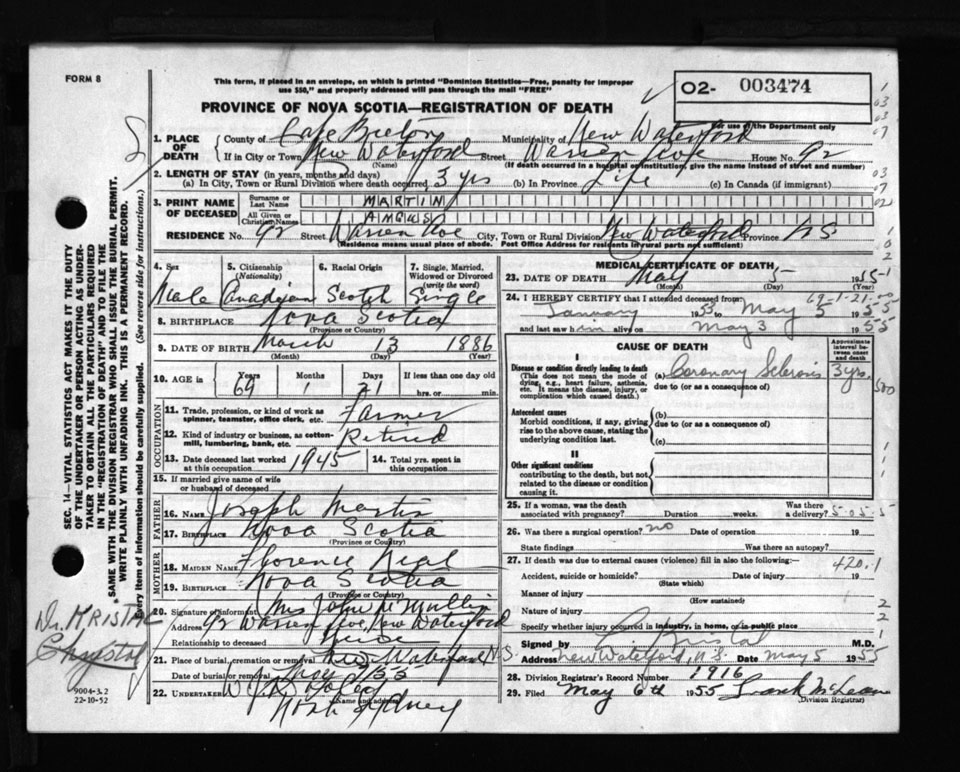 FORM 8
This form, if placed in an envelope, on which is printed "Dominion Statistics—Free, penalty for improper
use $50," and properly addressed will pass through the mail "FREE"
O2- 003474
PROVINCE OF NOVA SCOTIA—REGISTRATION OF DEATH
For use of the Department only
1. PLACE OF DEATH
County of Cape Breton Municipality of New Waterford
If in City or Town New Waterford Street Warren Ave House No. 92
(Name) (If death occurred in a hospital or institution, give the name instead of street and number)
2. LENGTH OF STAY (in years, months and days)
(a) In City, Town or Rural Division where death occurred 3 yrs (b) In Province Life (c) In Canada (if immigrant)
3. PRINT NAME OF DECEASED
Surname or Last Name MARTIN
All Given or Christian Names ANGUS
RESIDENCE No. 92 Street Warren Ave City, Town or Rural Division New Waterford Province N S
(Residence means usual place of abode. Post Office Address for residents in rural parts not sufficient)
4. Sex 5. Citizenship (Nationality) 6. Racial Origin 7. Single, Married, Widowed or Divorced (write the word)
Male Canadian Scotch Single
8. BIRTHPLACE Nova Scotia
(Province or Country)
9. DATE OF BIRTH March 13 1886
(Month) (Day) (Year)
10. AGE IN Years Months Days If less than one day
69 1 21 hrs. or min.
OCCUPATION
11. Trade, profession, or kind of work as spinner, teamster, office clerk, etc. Farmer
12. Kind of industry or business, as cotton-mill, lumbering, bank, etc. Retired
13. Date deceased last worked at this occupation 1945 14. Total yrs. spent in this occupation
15. If married give name of wife or husband of deceased
FATHER
16. NAME Joseph Martin
17. BIRTHPLACE Nova Scotia
(Province or Country)
MOTHER
18. MAIDEN NAME Florence Neal
19. BIRTHPLACE Nova Scotia
(Province or Country)
20. Signature of informant Mrs John
Address 92 Warren Ave, New Waterford
Relationship to deceased
21. Place of burial, cremation or removal New Waterford N.S.
Date of burial or removal May 1955
22. UNDERTAKER
(Name and address)
North Sydney
MEDICAL CERTIFICATE OF DEATH
23. DATE OF DEATH May 5 1955
(Month) (Day)
69-1-21-00
24. I HEREBY CERTIFY that I attended deceased from:
January 1955 to May 5 1955
and last saw him alive on May 3 1955
CAUSE OF DEATH
Approximate interval between onset and death
I
Disease or condition directly leading to death
(This does not mean the mode of dying, e.g., heart failure, asthenia, etc. It means the disease, injury, or complication which caused death.)
(a) Coronary Sclerosis 3 yrs.
due to (or as a consequence of)
Antecedent causes
Morbid conditions, if any, giving rise to the above cause, stating the underlying condition last.
(b)
due to (or as a consequence of)
(c)
II
Other significant conditions
contributing to the death, but not related to the disease or condition causing it.
25. If a woman, was the death associated with pregnancy? Duration weeks. Was there a delivery?
26. Was there a surgical operation? no Date of operation 19
State findings Was there an autopsy?
27. If death was due to external causes (violence) fill in also the following:— 420.1
Accident, suicide or homicide? Date of injury 19
(State which)
Manner of injury
(How sustained)
Nature of injury
Specify whether injury occurred in industry, in home, or in public place
Signed by M.D.
Address New Waterford, N.S. Date May 5 1955
28. Division Registrar's Record Number 1916
29. Filed May 6th 1955 Frank McLean
(Division Registrar)
SEC. 14—VITAL STATISTICS ACT MAKES IT THE DUTY
OF THE UNDERTAKER OR PERSON ACTING AS UNDER-
TAKER TO OBTAIN ALL THE PARTICULARS REQUIRED
IN THE "REGISTRATION OF DEATH" AND TO FILE THE
SAME WITH THE DIVISION REGISTRAR WHO SHALL ISSUE THE BURIAL PERMIT.
WRITE PLAINLY WITH UNFADING INK. THIS IS A PERMANENT RECORD.
Every item of information should be carefully supplied. (See reverse side for instructions.)
9004-3.2
22-10-52